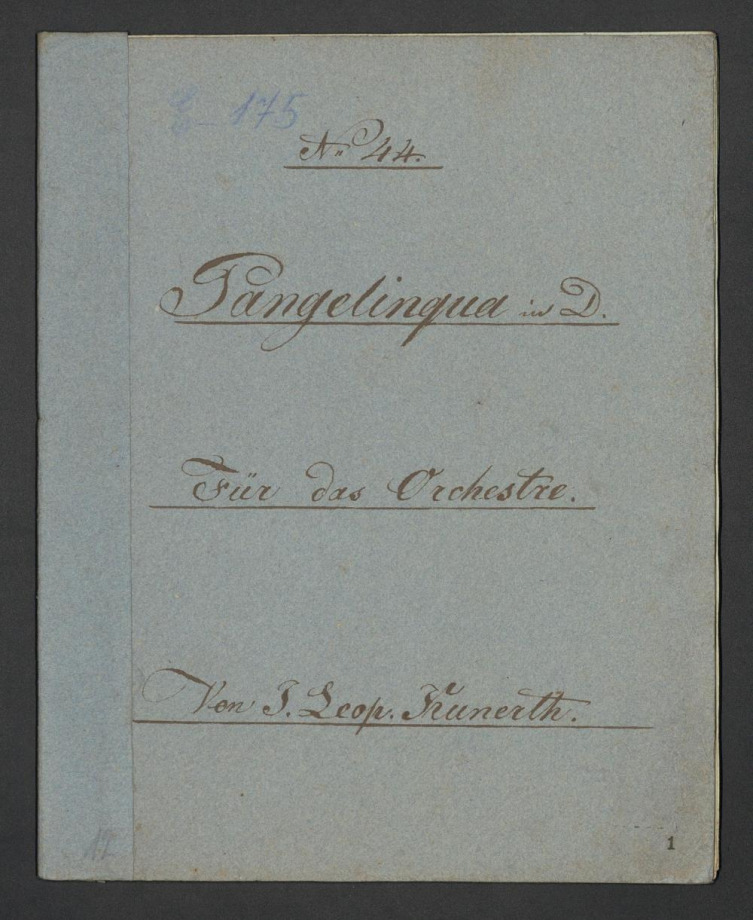 175
No 44.
Pangelinqua in D.
Für das Orchestre.
Von J. Leop. Kunerth.
12
1